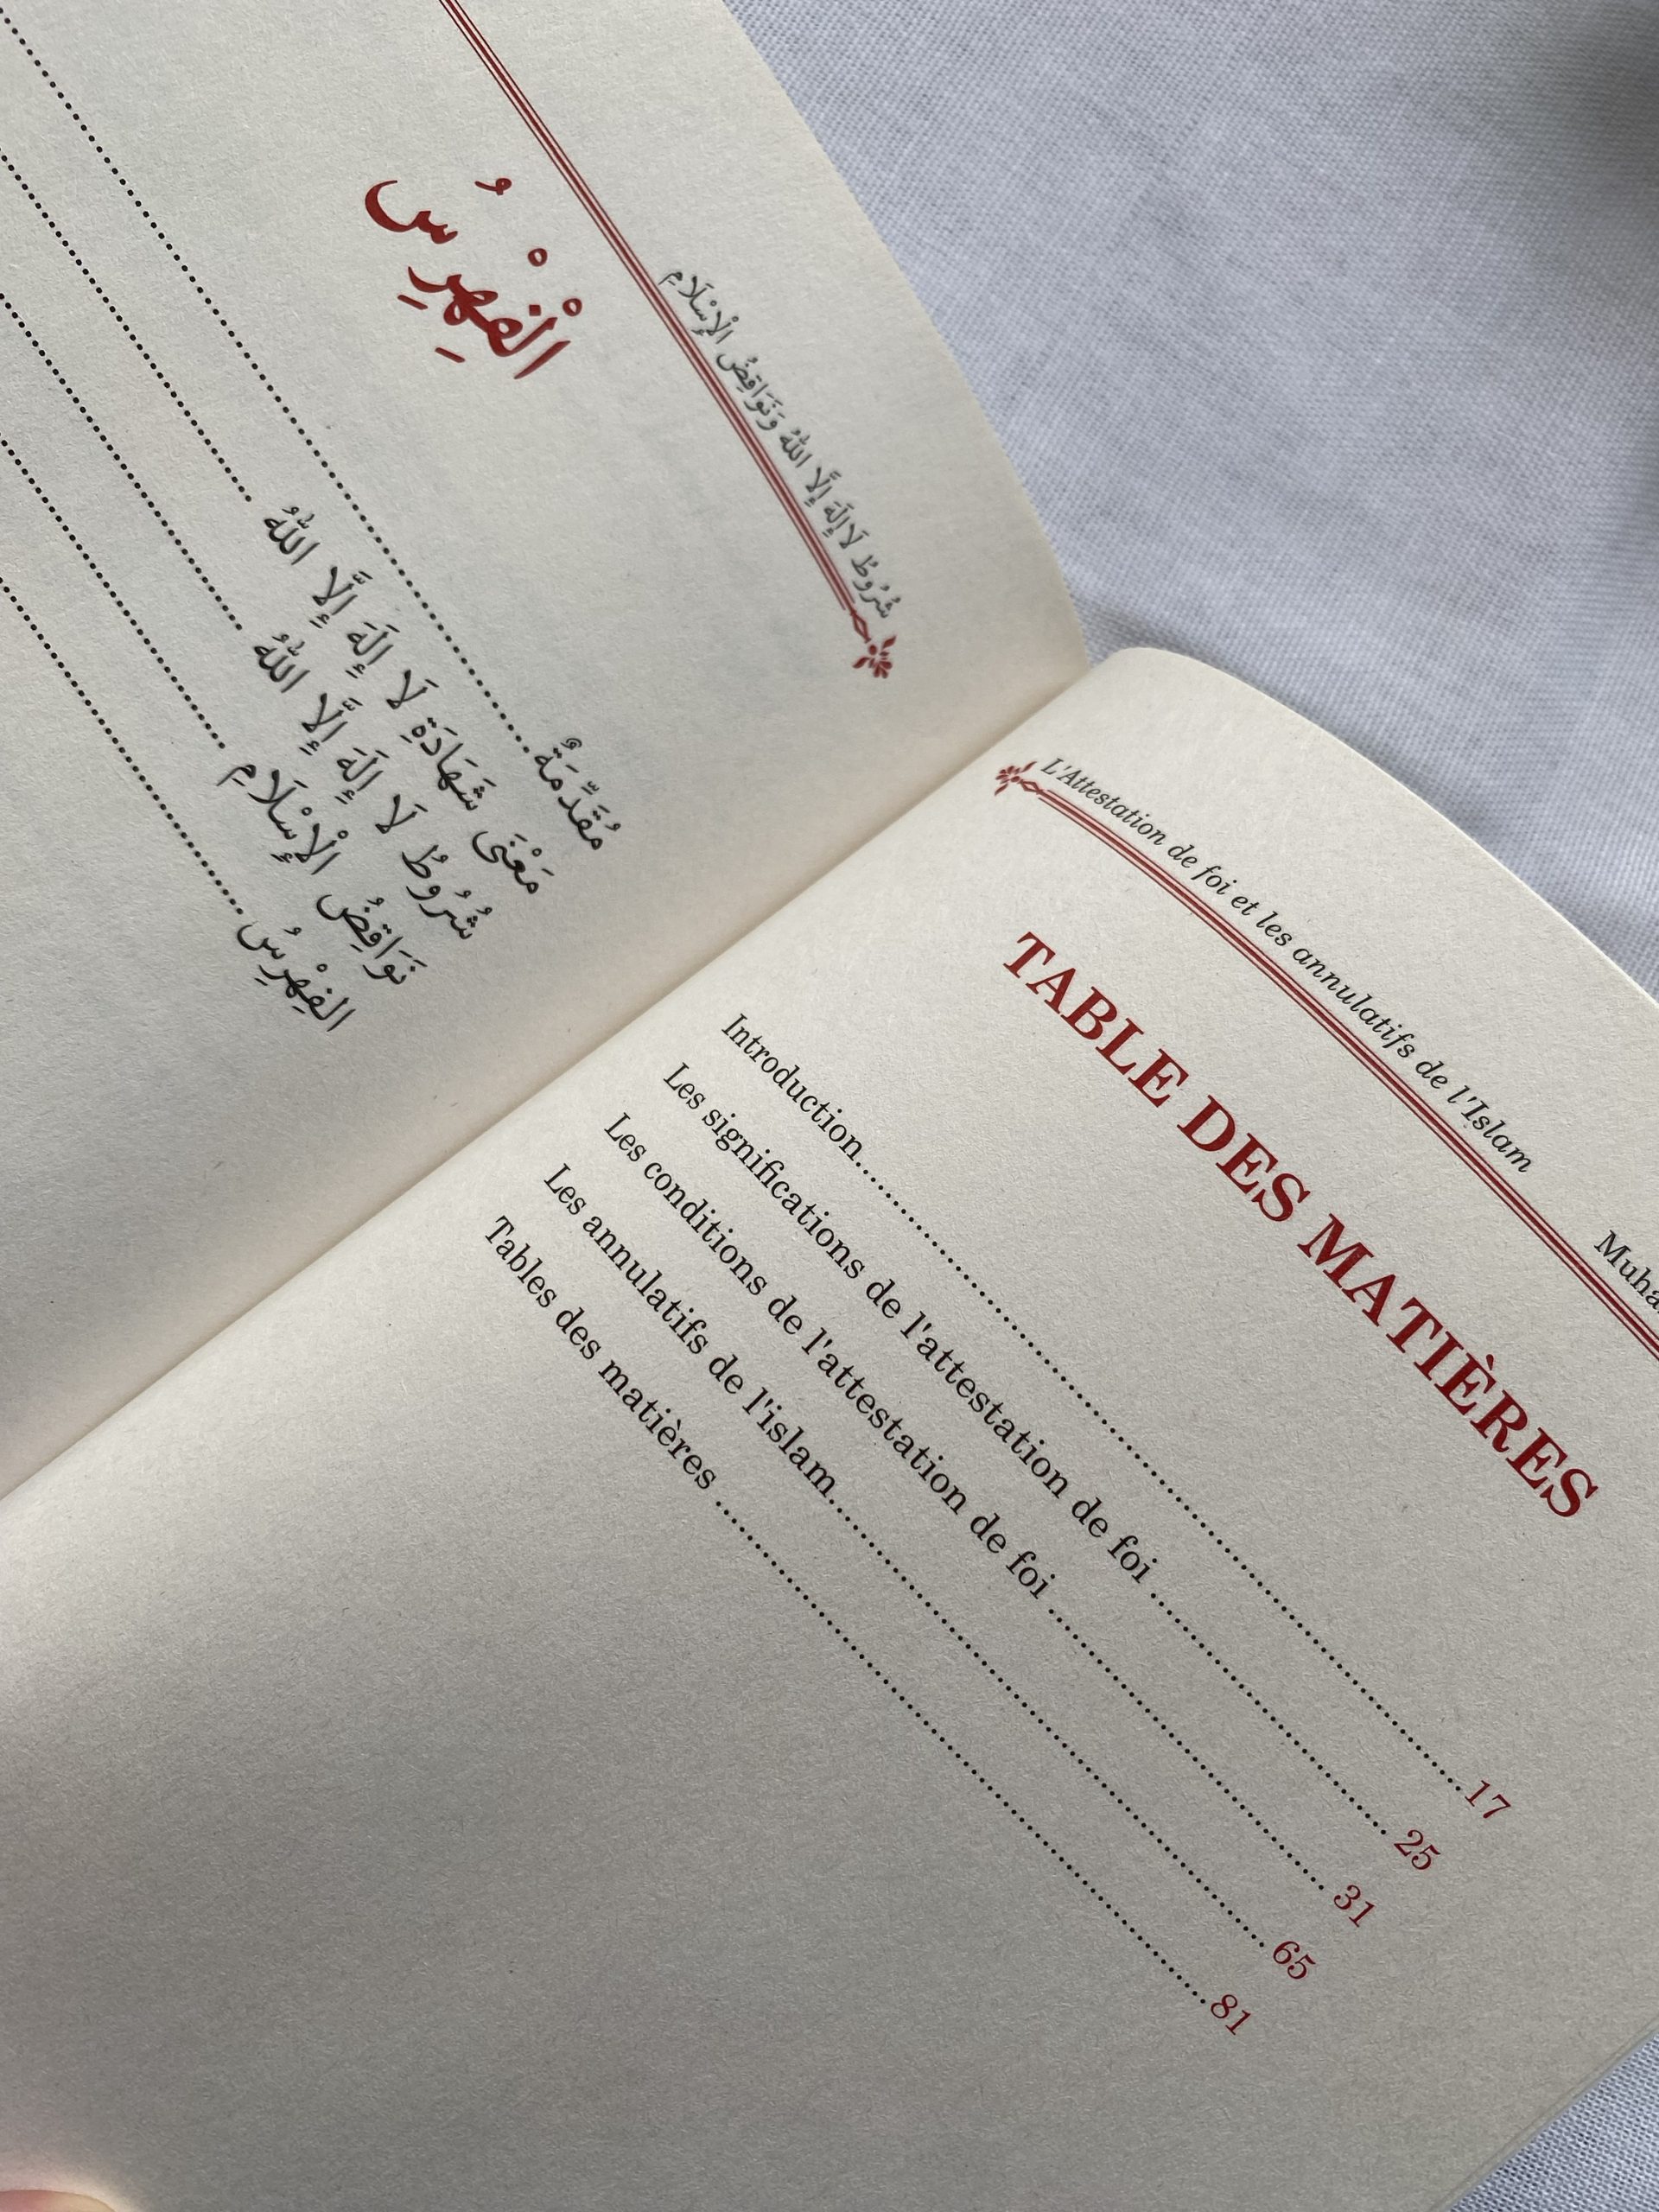 شُرُوطُ لَا إِلَهَ إِلَّا اللهُ وَنَوَاقِضُ الْإِسْلَامِ
الْفِهْرِسُ
مُقَدِّمَةٌ
مَعْنَى شَهَادَةِ لَا إِلَهَ إِلَّا اللهُ
شُرُوطُ لَا إِلَهَ إِلَّا اللهُ
نَوَاقِضُ الْإِسْلَامِ
الفِهْرِسُ
L'Attestation de foi et les annulatifs de l'Islam
TABLE DES MATIÈRES
Introduction 17
Les significations de l'attestation de foi 25
Les conditions de l'attestation de foi 31
Les annulatifs de l'islam 65
Tables des matières 81